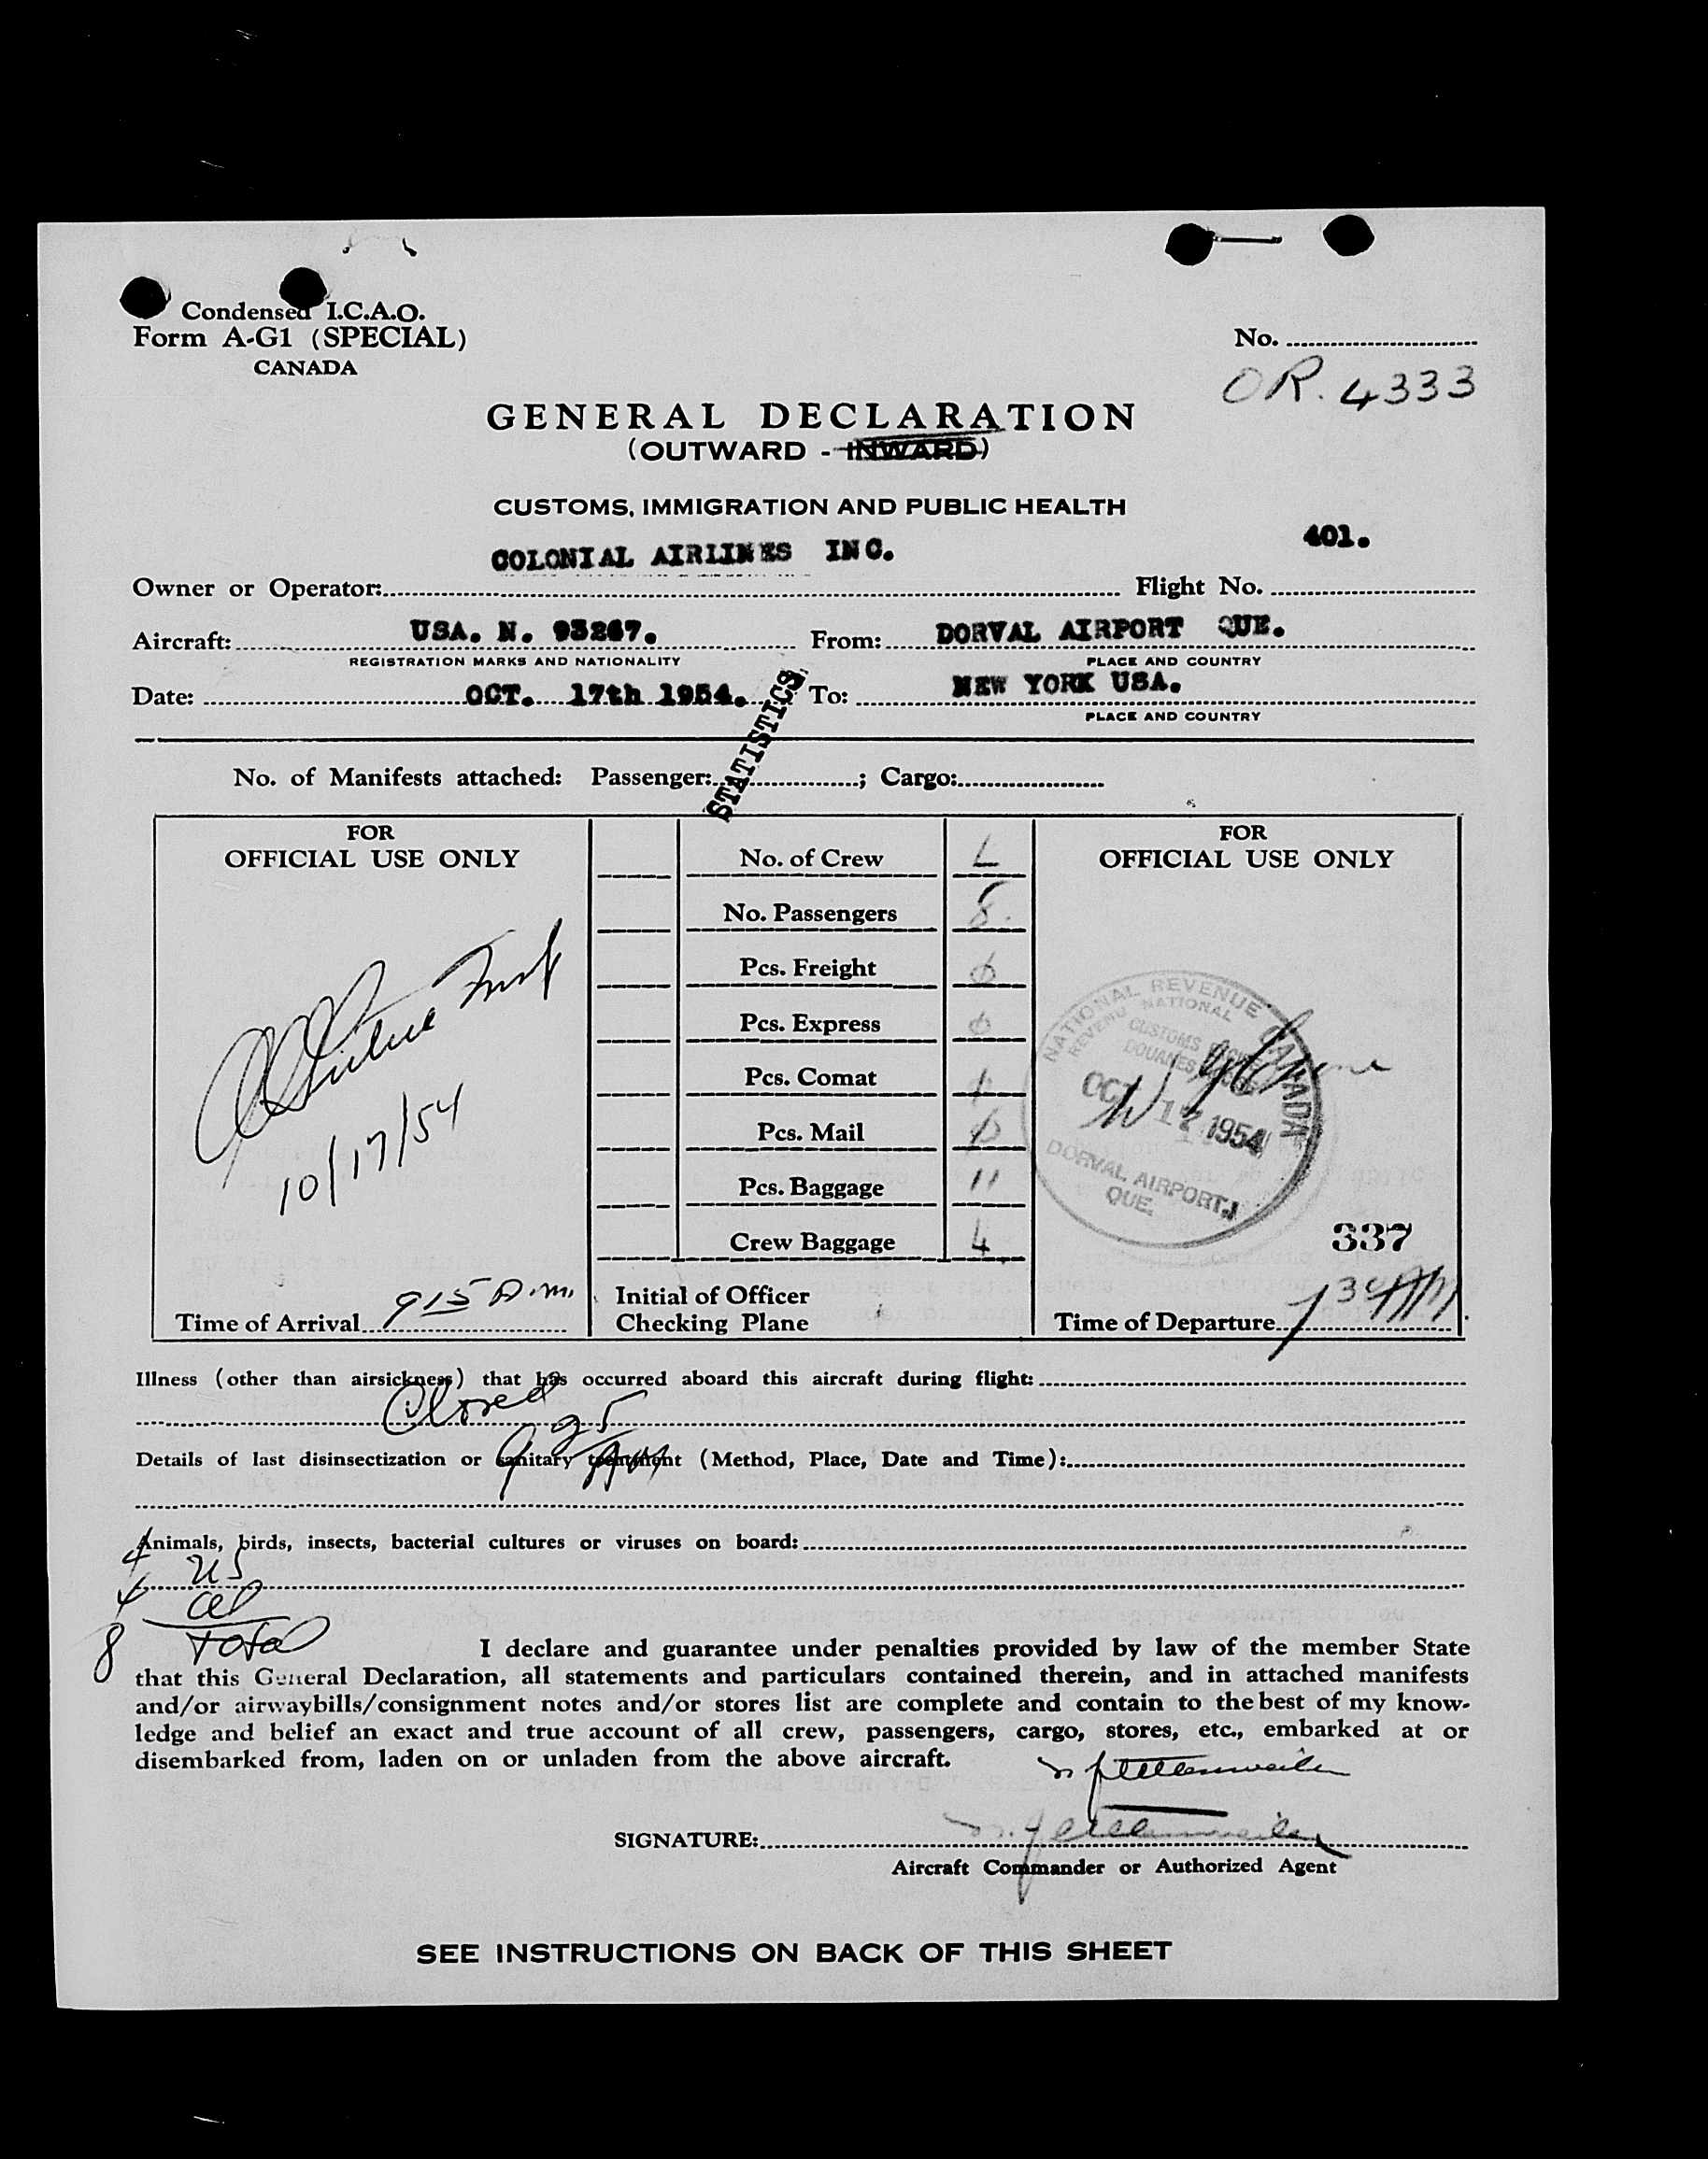 Condensed I.C.A.O.
Form A-G1 (SPECIAL)
CANADA
No.
OR. 4333
GENERAL DECLARATION
(OUTWARD - INWARD)
CUSTOMS, IMMIGRATION AND PUBLIC HEALTH
COLONIAL AIRLINES INC.
401.
Owner or Operator: Flight No.
Aircraft: USA. N. 93267. From: DORVAL AIRPORT QUE.
REGISTRATION MARKS AND NATIONALITY PLACE AND COUNTRY
Date: OCT. 17th 1954. To: NEW YORK USA.
PLACE AND COUNTRY
STATISTICS
No. of Manifests attached: Passenger: ; Cargo:
FOR
OFFICIAL USE ONLY
10/17/54
Time of Arrival 915 A.m.
No. of Crew
No. Passengers 8.
Pcs. Freight
Pcs. Express
Pcs. Comat
Pcs. Mail
Pcs. Baggage 11
Crew Baggage 4
Initial of Officer
Checking Plane
FOR
OFFICIAL USE ONLY
NATIONAL REVENUE CANADA
REVENU NATIONAL
CUSTOMS EXCISE
DOUANES
OCT 17 1954
DORVAL AIRPORT,
QUE.
337
Time of Departure
Illness (other than airsickness) that has occurred aboard this aircraft during flight:
Closed
925
Details of last disinsectization or sanitary treatment (Method, Place, Date and Time):
Animals, birds, insects, bacterial cultures or viruses on board:
4 US
4
8 Total
I declare and guarantee under penalties provided by law of the member State
that this General Declaration, all statements and particulars contained therein, and in attached manifests
and/or airwaybills/consignment notes and/or stores list are complete and contain to the best of my know-
ledge and belief an exact and true account of all crew, passengers, cargo, stores, etc., embarked at or
disembarked from, laden on or unladen from the above aircraft.
SIGNATURE:
Aircraft Commander or Authorized Agent
SEE INSTRUCTIONS ON BACK OF THIS SHEET